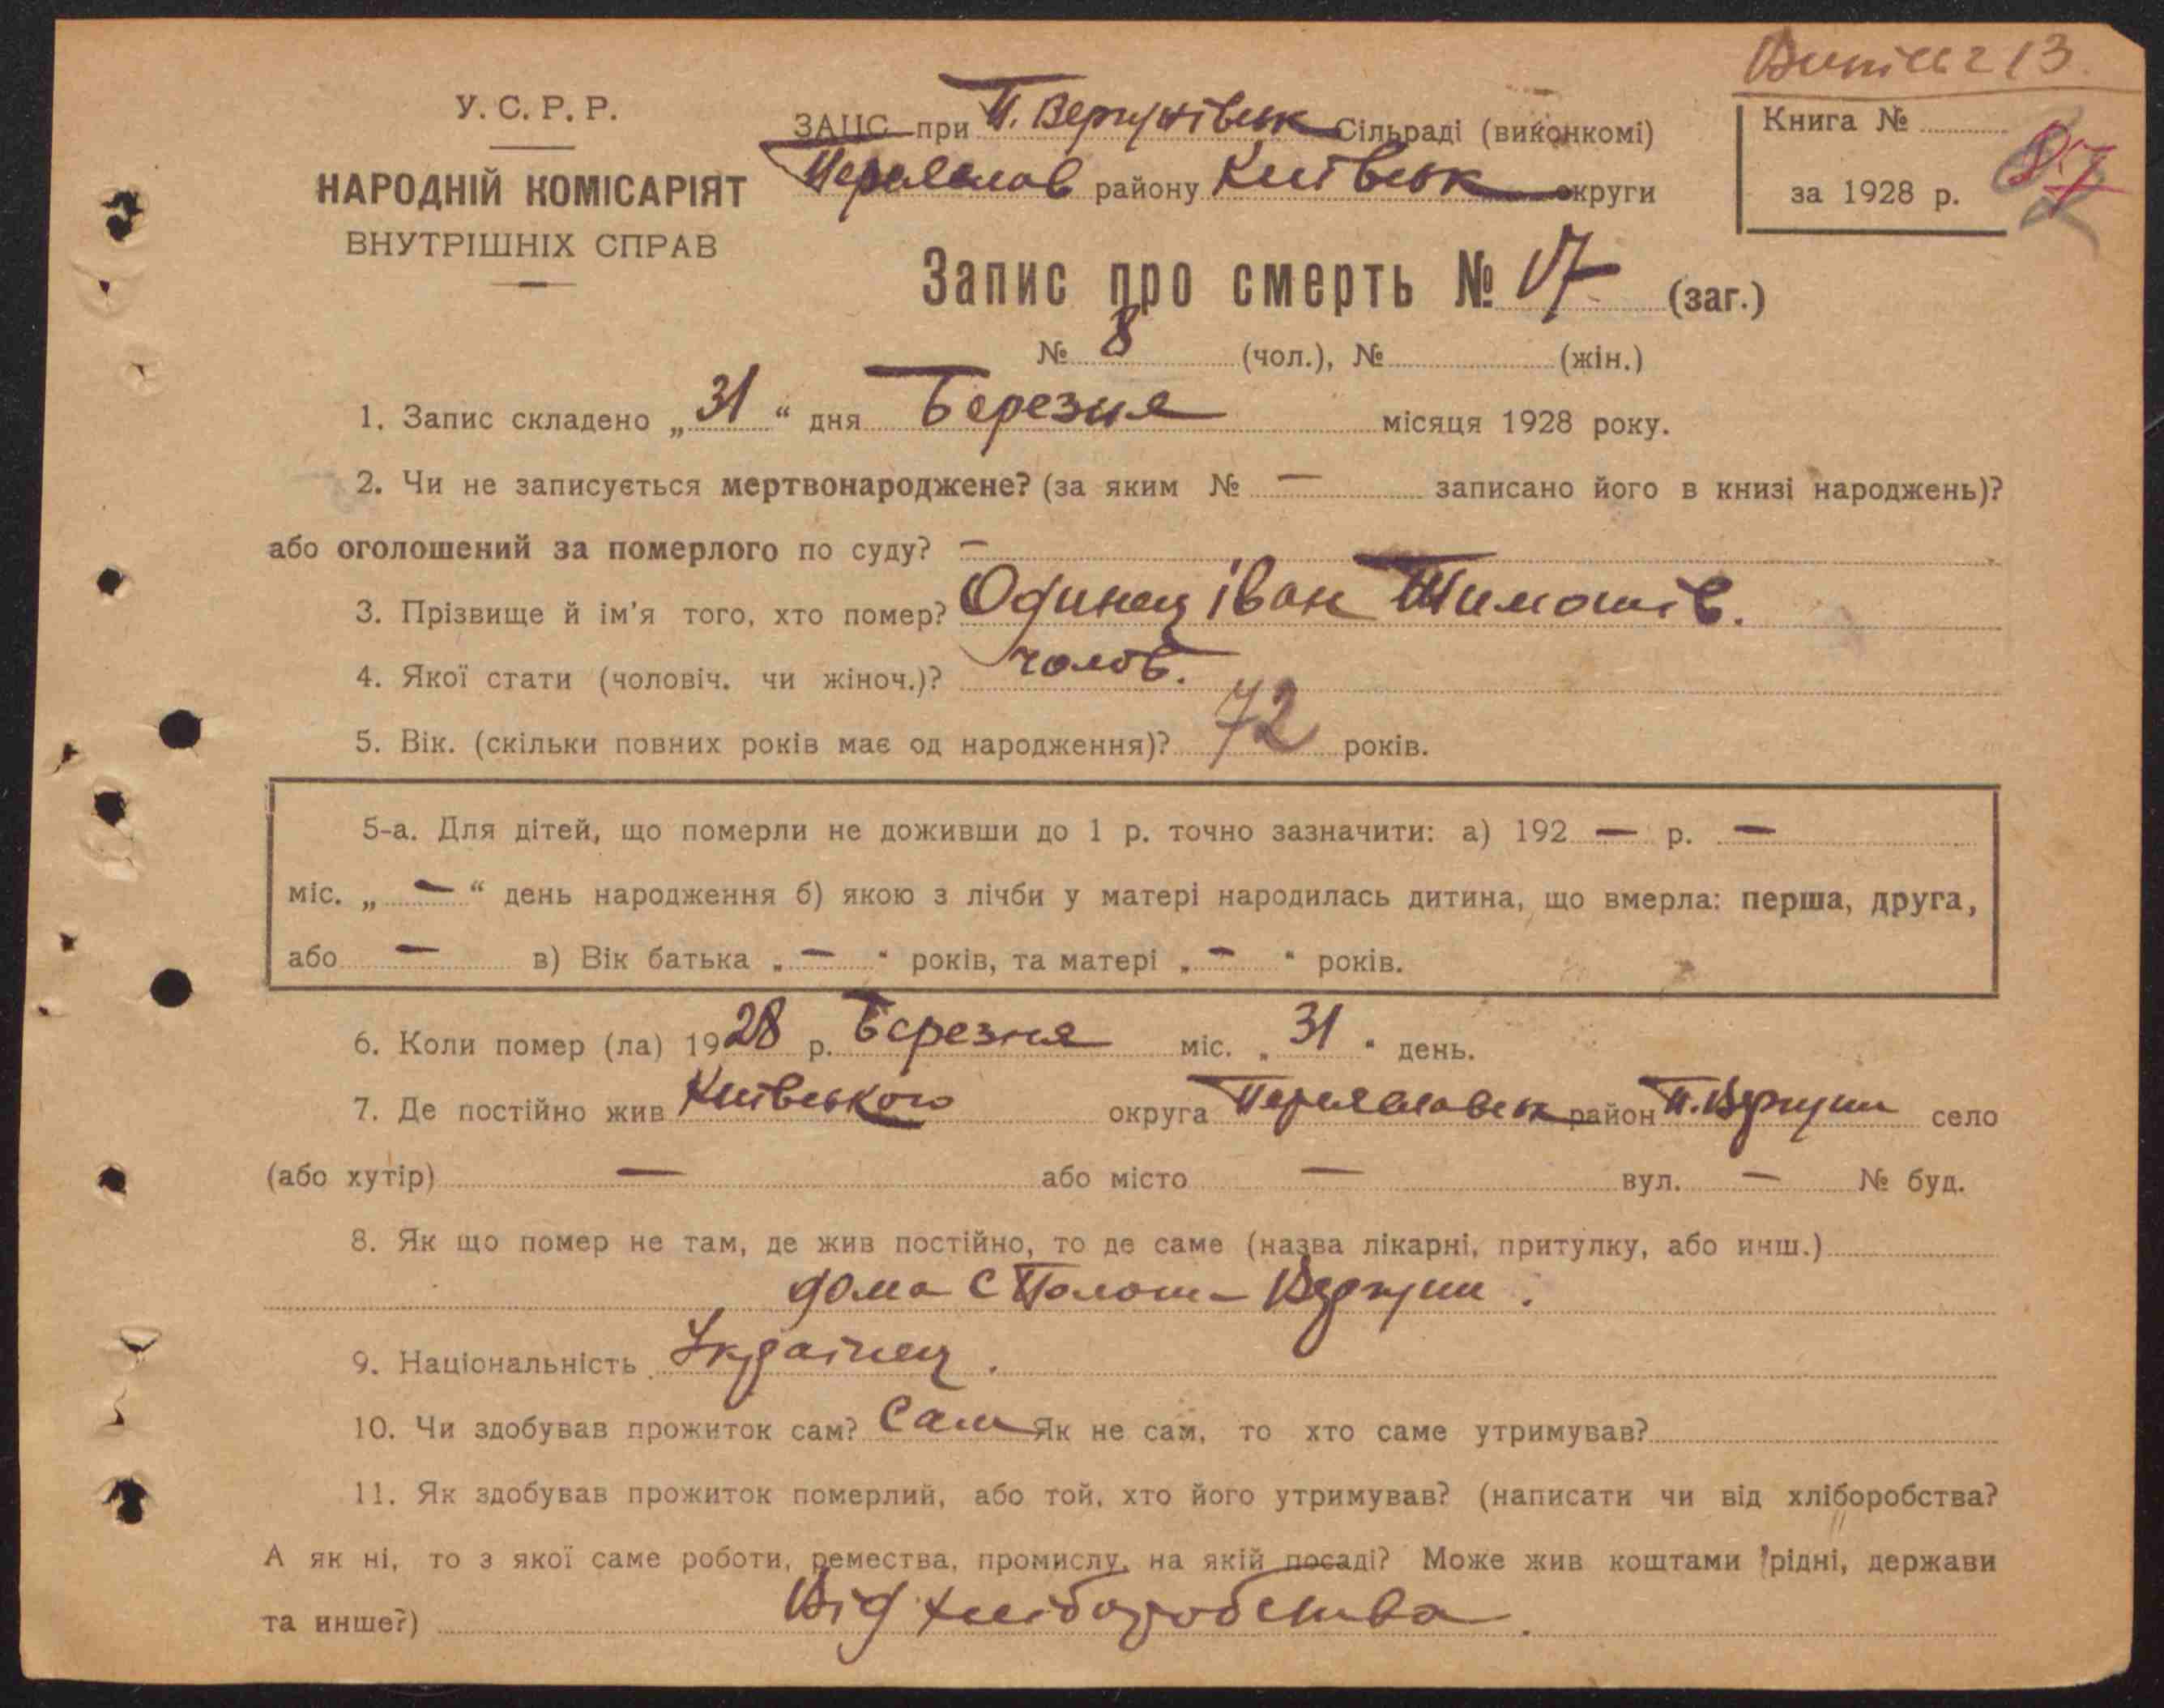 Витяг 13.
У. С. Р. Р.
НАРОДНІЙ КОМІСАРІЯТ
ВНУТРІШНІХ СПРАВ
ЗАПС при П. Вергунівськ Сільраді (виконкомі)
Переяслав району Київськ округи
Книга №
за 1928 р. 87
Запис про смерть № 17 (заг.)
№ 8 (чол.), № (жін.)
1. Запис складено „31“ дня Березня місяця 1928 року.
2. Чи не записується мертвонароджене? (за яким № — записано його в книзі народжень)?
або оголошений за померлого по суду? —
3. Прізвище й ім'я того, хто помер? Одинец Іван Тимошів.
4. Якої стати (чоловіч. чи жіноч.)? чолов.
5. Вік. (скільки повних років має од народження)? 72 років.
5-а. Для дітей, що померли не доживши до 1 р. точно зазначити: а) 192 — р. —
міс. „ — “ день народження б) якою з лічби у матері народилась дитина, що вмерла: перша, друга,
або — в) Вік батька „ — “ років, та матері „ — “ років.
6. Коли помер (ла) 1928 р. Березня міс. „ 31 “ день.
7. Де постійно жив Київського округа Переяславськ район П. Вергуни село
(або хутір) — або місто — вул. — № буд.
8. Як що помер не там, де жив постійно, то де саме (назва лікарні, притулку, або инш.)
дома с Полож Вергуни.
9. Національність Українец.
10. Чи здобував прожиток сам? Сам Як не сам, то хто саме утримував?
11. Як здобував прожиток померлий, або той, хто його утримував? (написати чи від хліборобства?
А як ні, то з якої саме роботи, ремества, промислу, на якій посаді? Може жив коштами рідні, держави
та инше?) Від хліборобства.